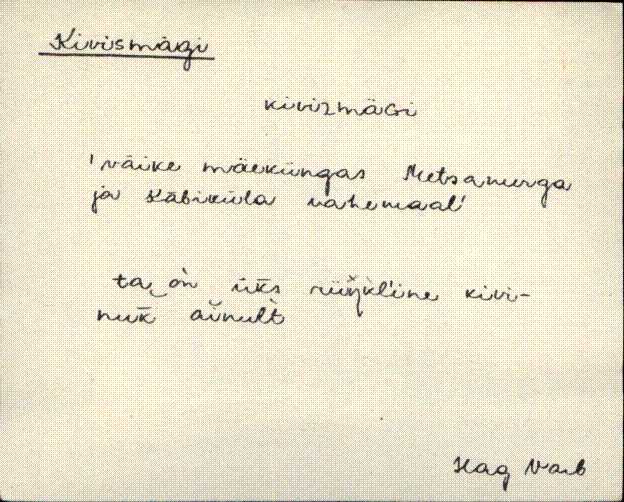 Kivismägi
kivizmäGi
'väike mäeküngas Metsanurga
ja Käbiküla vahemaal'
ta on üks rüŋkl'ine kivi-
nuk ainult
Hag Varb